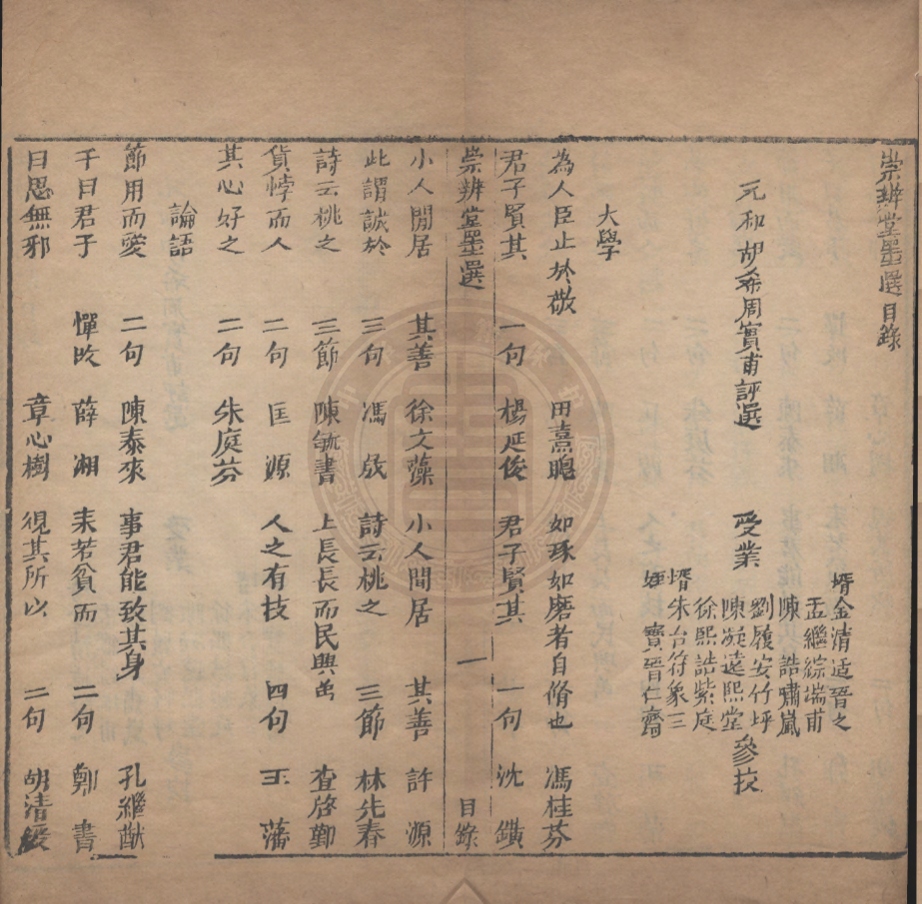 崇辨堂墨選目錄
元和胡希周實甫評選
受業
壻金清适晉之
孟繼綜端甫
陳誥嘯嵐
劉履安竹坪
陳凝遠熙堂
徐熙誥紫庭
壻朱台符象三
寶晉仁齋
參校
大學
為人臣止於敬 田熹聰 如琢如磨者自脩也 馮桂芬
君子賢其 一句 楊延俊 君子賢其 一句 沈鐄
崇辨堂墨選 一 目錄
小人閒居 其善 徐文藻 小人閒居 其善 許源
此謂誠於 三句 馮㡳 詩云桃之 三節 林先春
詩云桃之 三節 陳毓書 上長長而民興弟 查啓勤
貨悖而人 二句 匡源 人之有技 四句 王藩
其心好之 二句 朱庭芬
論語
節用而愛 二句 陳泰來 事君能致其身 孔繼猷
子曰君子 憚改 薛湘 未若貧而 二句 鄭書
曰思無邪 章心樹 視其所以 二句 胡清綬